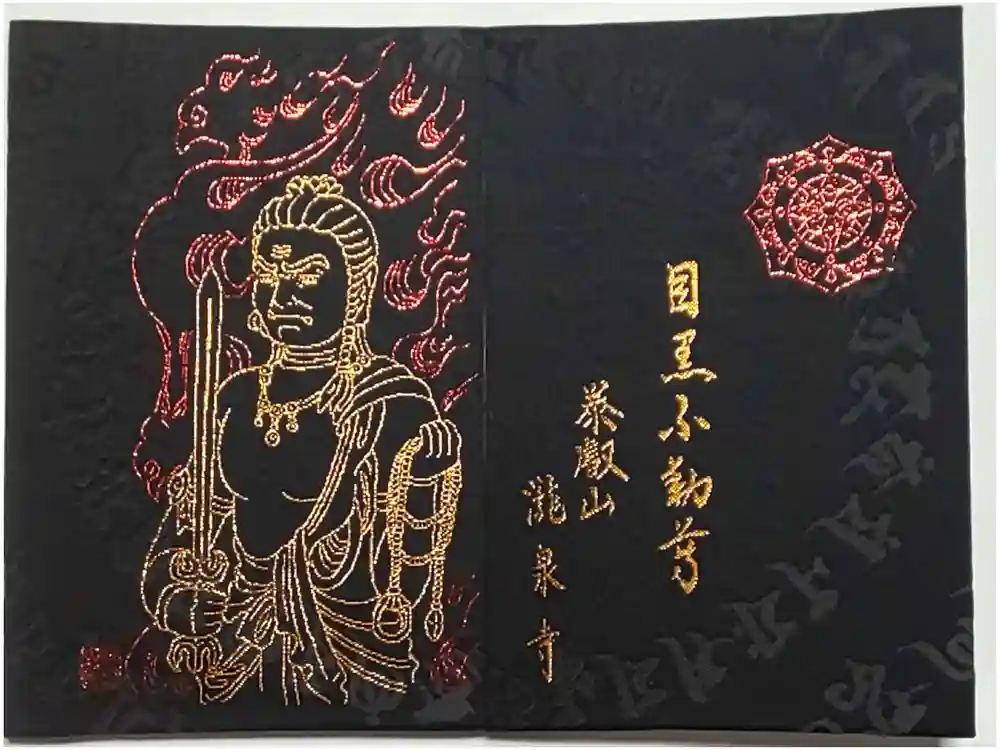 目黒不動尊
泰叡山
瀧泉寺